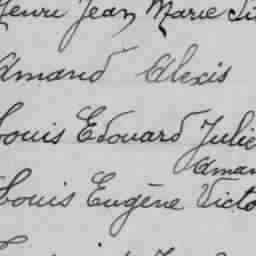 Henri Jean Marie
Amand Alexis
Louis Edouard Julie
Aman
Louis Eugène Victo